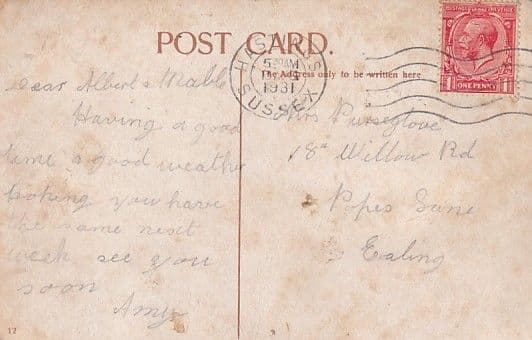 POST CARD.
The Address only to be written here
HASTINGS
SUSSEX
1931
POSTAGE REVENUE
ONE PENNY
Dear Albert & Mable
Having a good
time & good weather
hoping you have
the same next
week see you
soon
Amy
Mrs Purseglove
18a Willow Rd
Popes Lane
Ealing
12